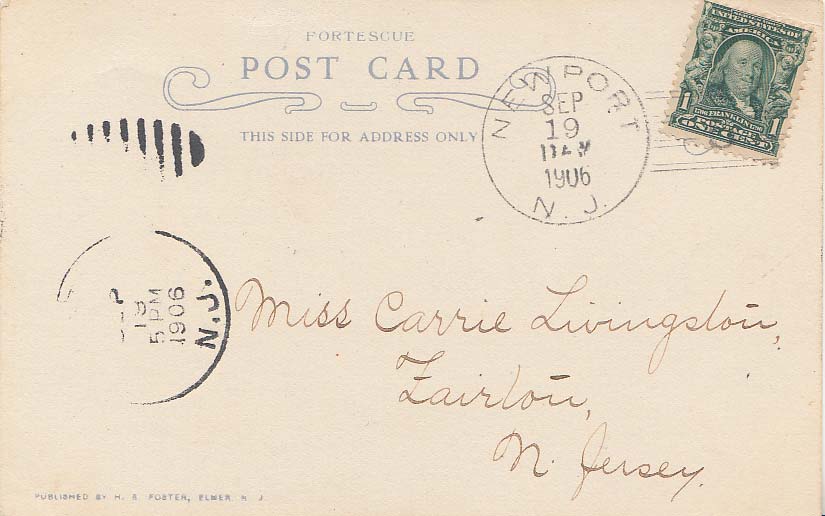 FORTESCUE
POST CARD
THIS SIDE FOR ADDRESS ONLY
NEWPORT
SEP
19
11AM
1906
N. J.
UNITED STATES OF
AMERICA
1 FRANKLIN 1
POSTAGE
ONE CENT
19
5 PM
1906
N.J.
Miss Carrie Livingston,
Fairton,
N. Jersey.
PUBLISHED BY H. S. FOSTER, ELMER N. J.